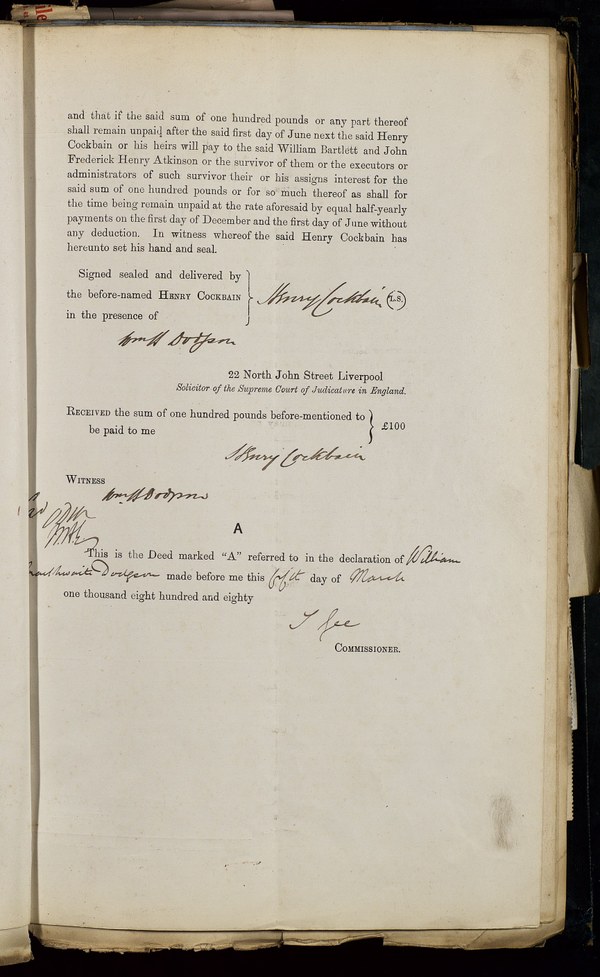 and that if the said sum of one hundred pounds or any part thereof
shall remain unpaid after the said first day of June next the said Henry
Cockbain or his heirs will pay to the said William Bartlett and John
Frederick Henry Atkinson or the survivor of them or the executors or
administrators of such survivor their or his assigns interest for the
said sum of one hundred pounds or for so much thereof as shall for
the time being remain unpaid at the rate aforesaid by equal half-yearly
payments on the first day of December and the first day of June without
any deduction. In witness whereof the said Henry Cockbain has
hereunto set his hand and seal.
Signed sealed and delivered by
the before-named HENRY COCKBAIN
in the presence of
Henry Cockbain L.S.
Wm H Dodgson
22 North John Street Liverpool
Solicitor of the Supreme Court of Judicature in England.
RECEIVED the sum of one hundred pounds before-mentioned to
be paid to me
£100
Henry Cockbain
WITNESS
Wm H Dodgson
A
This is the Deed marked "A" referred to in the declaration of William
Dodgson made before me this fifth day of March
one thousand eight hundred and eighty
Gee
COMMISSIONER.